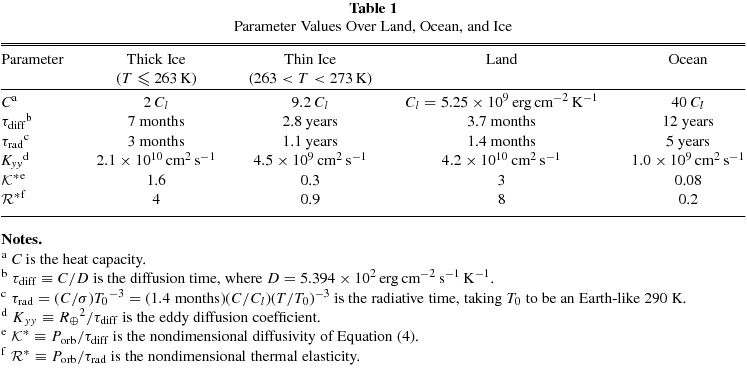 Table 1
Parameter Values Over Land, Ocean, and Ice
Parameter Thick Ice Thin Ice Land Ocean
(T ⩽ 263 K) (263 < T < 273 K)
Cᵃ 2 Cₗ 9.2 Cₗ Cₗ = 5.25 × 10⁹ erg cm⁻² K⁻¹ 40 Cₗ
τdiffᵇ 7 months 2.8 years 3.7 months 12 years
τradᶜ 3 months 1.1 years 1.4 months 5 years
Kyyᵈ 2.1 × 10¹⁰ cm² s⁻¹ 4.5 × 10⁹ cm² s⁻¹ 4.2 × 10¹⁰ cm² s⁻¹ 1.0 × 10⁹ cm² s⁻¹
𝒦*ᵉ 1.6 0.3 3 0.08
ℛ*ᶠ 4 0.9 8 0.2
Notes.
ᵃ C is the heat capacity.
ᵇ τdiff ≡ C/D is the diffusion time, where D = 5.394 × 10² erg cm⁻² s⁻¹ K⁻¹.
ᶜ τrad = (C/σ)T₀⁻³ = (1.4 months)(C/Cₗ)(T/T₀)⁻³ is the radiative time, taking T₀ to be an Earth-like 290 K.
ᵈ Kyy ≡ R⊕²/τdiff is the eddy diffusion coefficient.
ᵉ 𝒦* ≡ Porb/τdiff is the nondimensional diffusivity of Equation (4).
ᶠ ℛ* ≡ Porb/τrad is the nondimensional thermal elasticity.